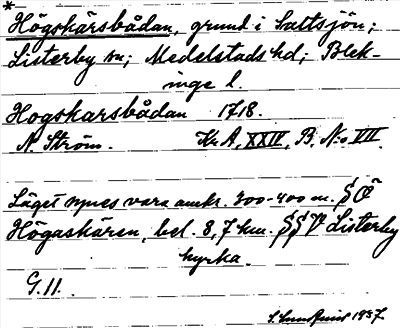 *
Högskärsbådan, grund i Saltsjön;
Listerby sn; Medelstads hd; Blek-
inge l.
Hogskarsbådan 1718.
N. Ström. Kr. A, XXIV, B, No VII.
Läget synes vara omkr. 300-400 m. S Ö
Högaskären, bel. 8,7 km. SSV Listerby
kyrka.
G. 11.
1937.